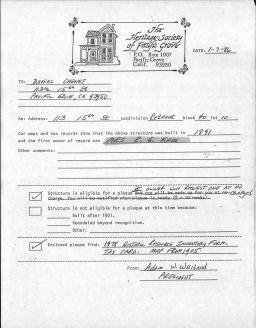 The
Heritage Society
of Pacific Grove
P.O. Box 1007
Pacific Grove
Calif. 93950
DATE: 1-7-86
TO:
113½ 15th St
Pacific Grove, CA 93950
Re: Address: 113 15th St subdivision block lot 10
Our maps and tax records show that the above structure was built in 1891
and the first owner of record was Mrs E. G.
Other comments:
Structure is eligible for a plaque
Structure is not eligible for a plaque at this time because:
Built after 1901.
Remodeled beyond recognition.
Other:
Enclosed please find: 1978 Historic Resources Inventory Form.
Tax card. Map from 1905
From: Adam W Weiland
President